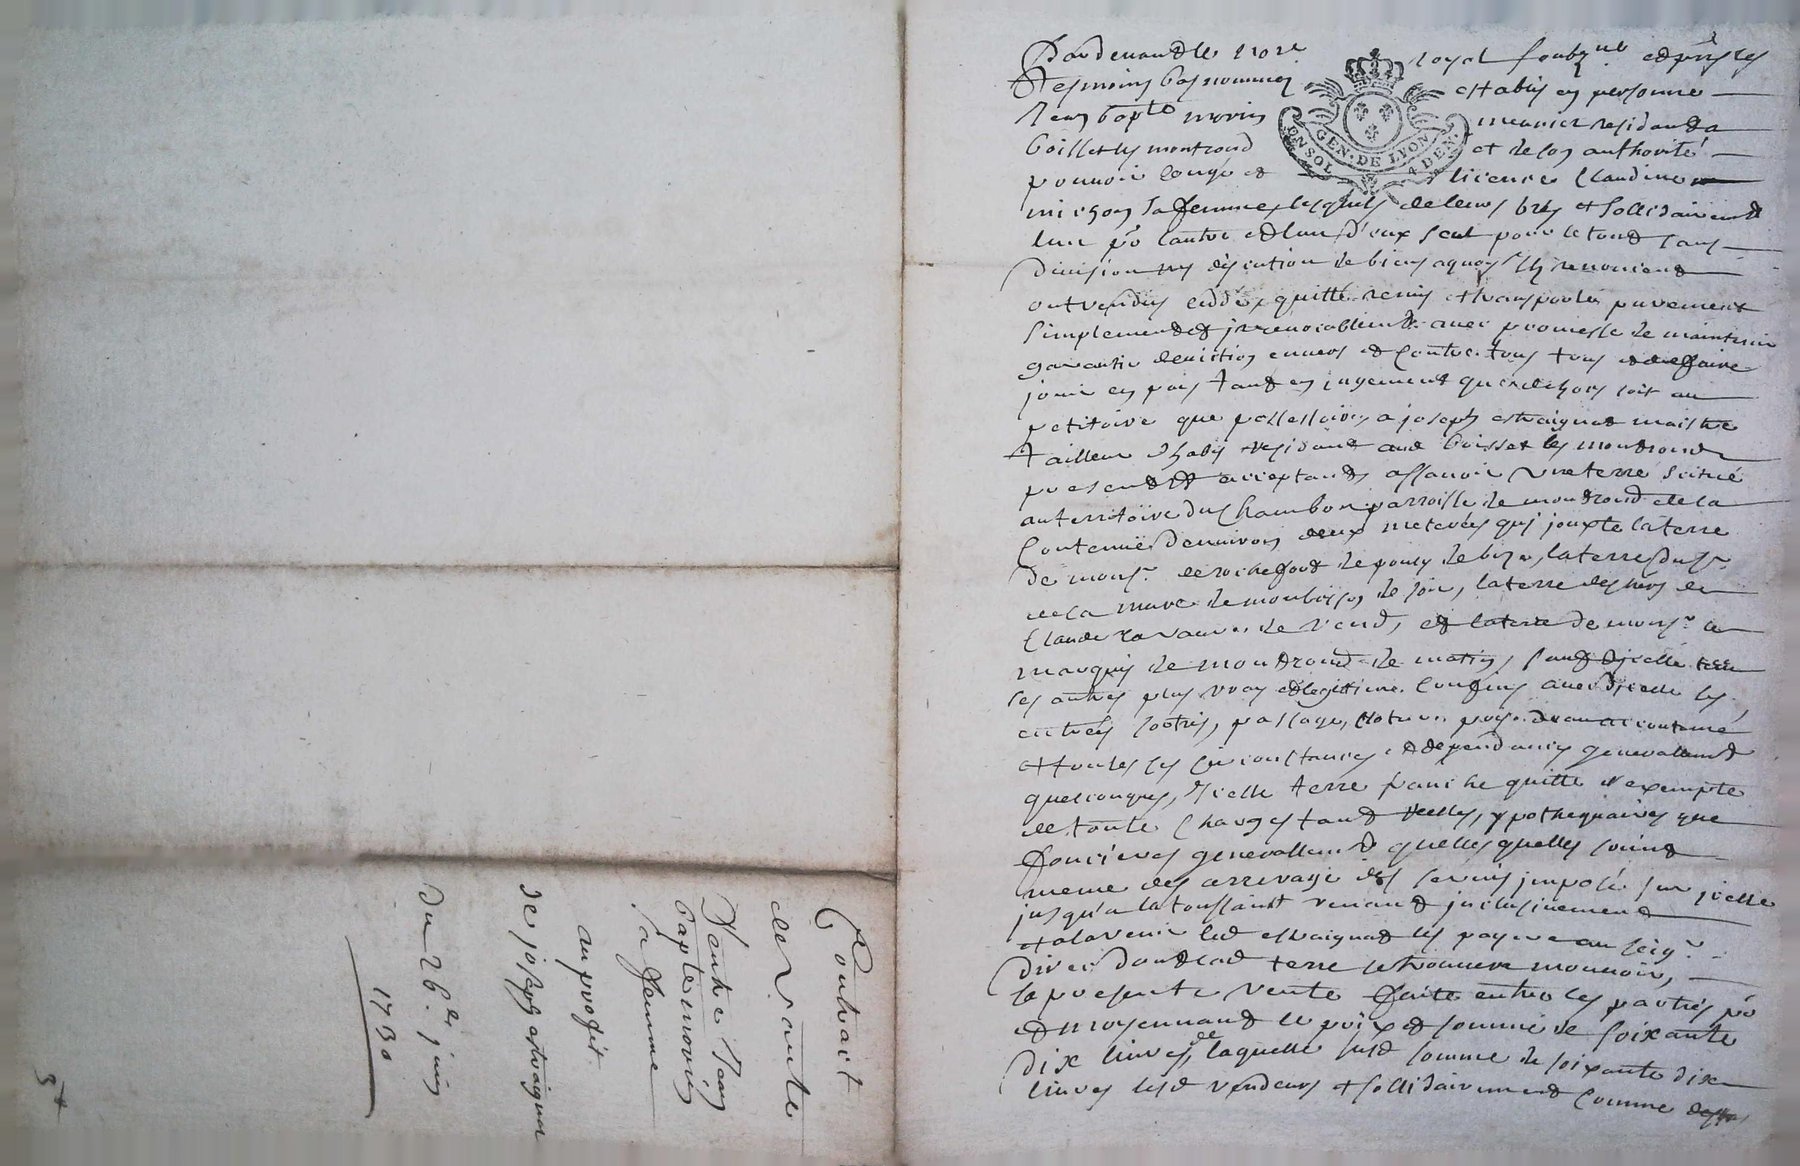 Contrait
de vante
Jean
baptε morin
sa femme
au proffit
de joseph estraignat
du 26e. juin
1730
Pardevant le nore royal soubzne et puis les
tesmoins bas nommez establis en personne
Jean bapte morin meunier residant a
boisset les montrond et de son authorité
pouvoir congé et licence Claudine
michon sa femme, lesquels de leurs grés et sollidairement
lun po lautre et lun d'eux seul pour le tout sans
division ny discution de biens aquoy ils renoncent
ont vendus ceddé, quitté remis et transportés purement
simplement et jrrevocablemt avec promesse de maintenir
garantir deviction envers et contre tous et de faire
jouir en paix tant en jugement que dehors soit au
petitoire que possessoire, a joseph estraignat maistre
tailleur d'habis residant aud boisset les montrond
present et acceptant, assavoir une terre scitué
au territoire du Chambon parroisse de montrond de la
Contenue d'environ deux meterées qui jouxte la terre
de monsr. de rochefort de bize, la terre du sr.
de la mure de soir, la terre des hers de
Claude de vent, et la terre de monsr. le
marquis de montrond de matin, sauf d'jcelle terre
ses autres plus vrays et legitime Confins avec d'jcelle ses
entrées sorties, passage, accoutumé
et toutes ses circonstances et dependances generallement
quelconques, jcelle terre franche quitte et exempte
de toute charges tant ypothequaires que
foncieres generallement quelles quelles soient
meme des arrerage des servis jmposé sur jcelle
jusqu'a la toussaint venant jnclusivement
et a lavenir led estraignat les payera au seigr.
direc dont lad terre se trouvera mouvoir,
la presente vente faite entre les parties po
et moyennant le prix et somme de soixante
dix livres, de laquelle susd somme de soixante dix
livres lesd vendeurs et sollidairement comme
GEN. DE LYON
UN SOL 4 DEN.